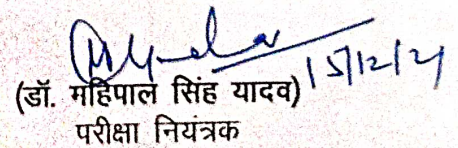 15/12/21
(डॉ. महिपाल सिंह यादव)
परीक्षा नियंत्रक